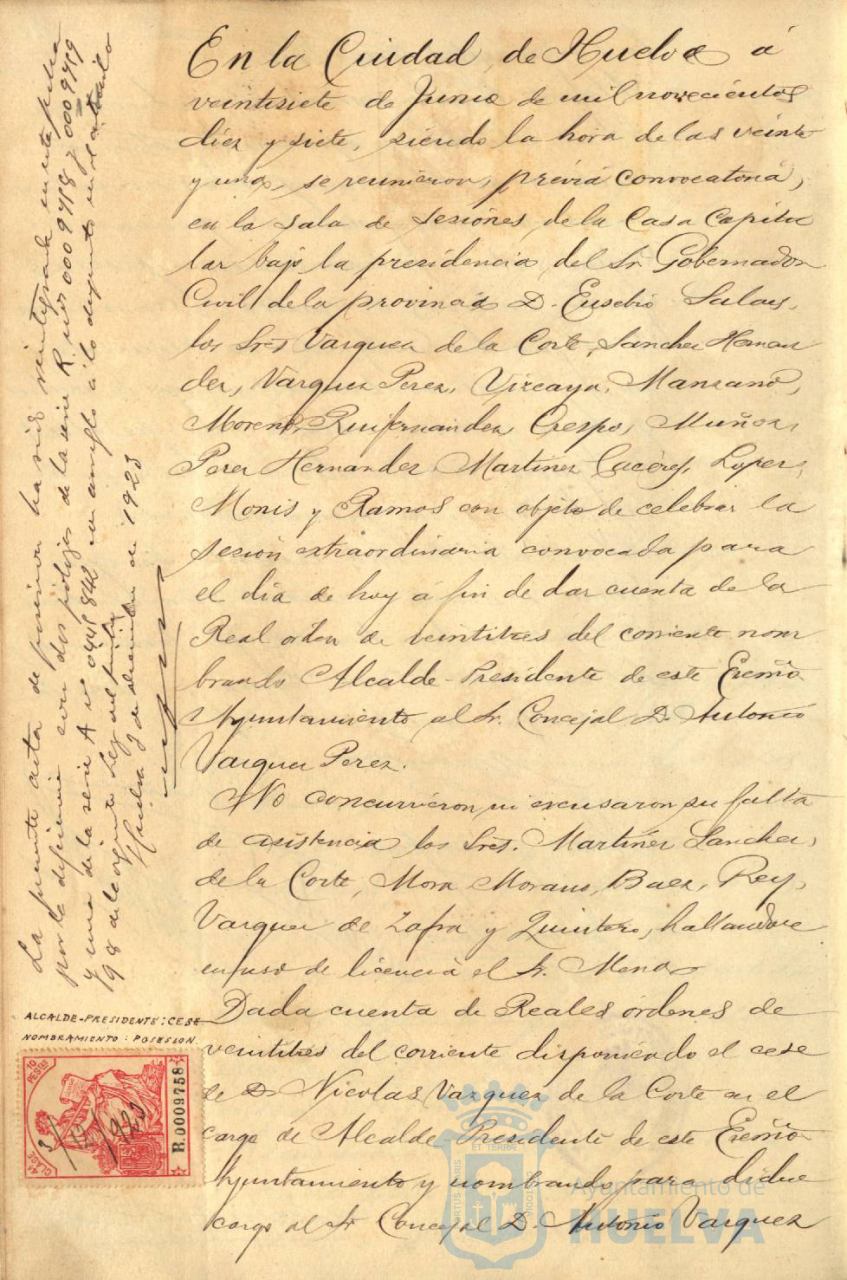 En la Ciudad de Huelva á
veintisiete de Junio de mil novecientos
diez y siete, siendo la hora de las veinte
y una, se reunieron, prévia convocatoria,
en la sala de sesiones de la Casa Capitu
lar bajo la presidencia del Sr. Gobernador
Civil de la provincia D. Eusebio Salas,
los Sres Vazquez de la Corte, Sanchez Hernan
dez, Vazquez Perez, Vizcaya, Manzano,
Moreno, Ruifernandez, Crespo, Muñoz,
Perez Hernandez, Martinez Cacéres, Lopez,
Monis y Ramos con objeto de celebrar la
sesion extraordinaria convocada para
el dia de hoy á fin de dar cuenta de la
Real orden de veintitres del corriente nom
brando Alcalde-Presidente de este Excmo
Ayuntamiento al Sr. Concejal D. Antonio
Vazquez Perez.
No concurrieron ni excusaron su falta
de asistencia los Sres. Martinez Sanchez,
de la Corte, Mora Morano, Baez, Rey,
Vazquez de Zafra y Quintero, hallandose
en uso de licencia el Sr. Mena
Dada cuenta de Reales órdenes de
veintitres del corriente disponiendo el cese
de D. Nicolas Vazquez de la Corte en el
cargo de Alcalde Presidente de este Excmo
Ayuntamiento y nombrando para dicho
cargo al Sr Concejal D. Antonio Vazquez
La presente acta de posesion ha sido reintegrada en esta fecha
por la diferencia con dos pólizas de la serie R. nos 0009718 y 0009719
y una de la serie A nº 0441842 con arreglo a lo dispuesto en el articulo
198 de la vigente Ley del timbre
Huelva 3 de diciembre de 1923
ALCALDE-PRESIDENTE: CESE
NOMBRAMIENTO: POSESION
10 PESETAS
CLASE 4ª
R.0009758
3/12/923
Ayuntamiento de
HUELVA